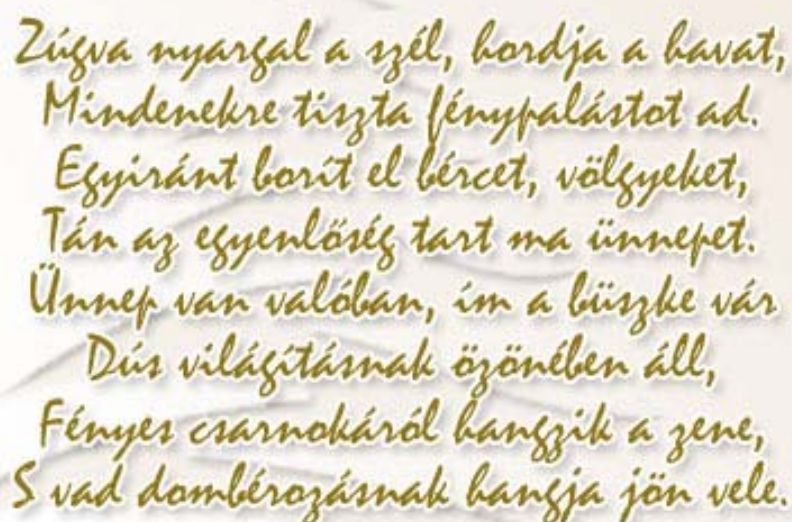 Zúgva nyargal a szél, hordja a havat,
Mindenekre tiszta fénypalástot ad.
Egyiránt borít el bércet, völgyeket,
Tán az egyenlőség tart ma ünnepet.
Ünnep van valóban, ím a büszke vár
Dús világításnak özönében áll,
Fényes csarnokáról hangzik a zene,
S vad dombérozásnak hangja jön vele.